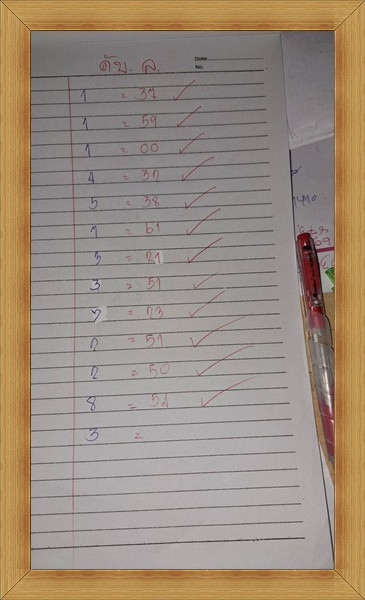 ดับ. ล.
Date
No.
1 = 37 ✓
1 = 59 ✓
1 = 00 ✓
4 = 37 ✓
5 = 38 ✓
7 = 61 ✓
3 = 21 ✓
3 = 51 ✓
7 = 73 ✓
= 51 ✓
= 50 ✓
8 = ✓
3 =